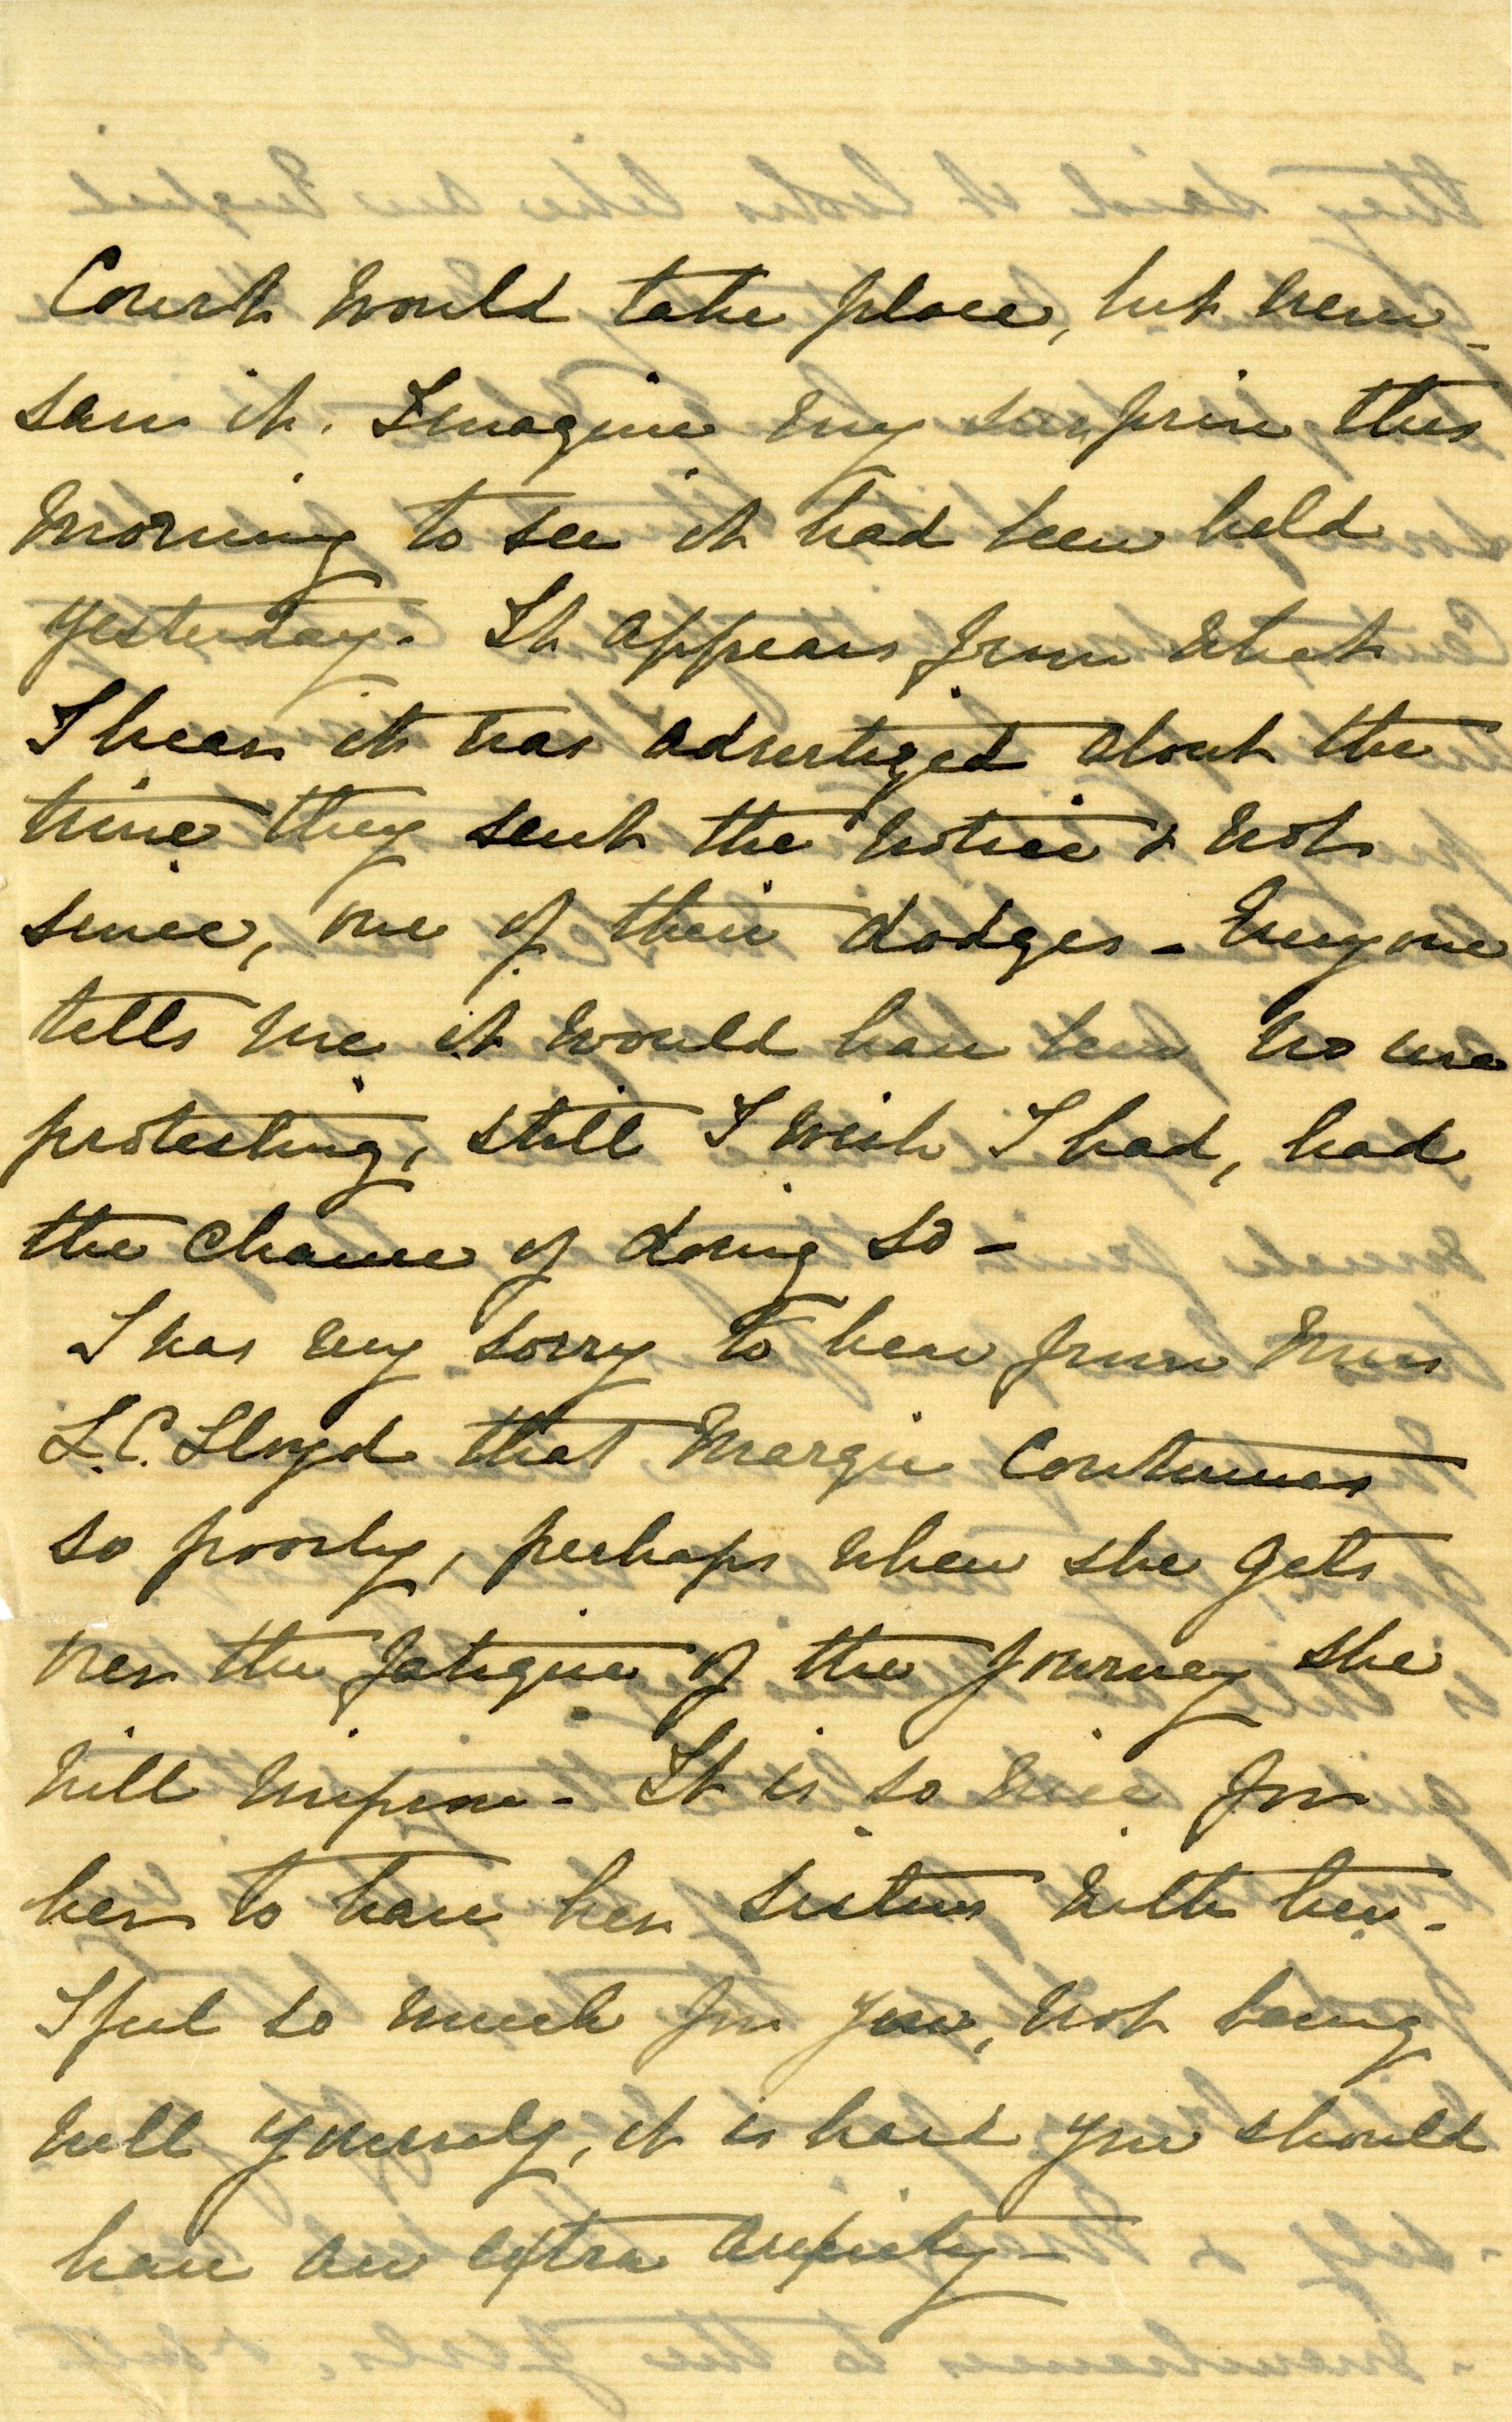 Court would take place, but never
saw it. Imagine my surprise this
morning to see it had been held
yesterday. It appears from what
I hear it was advertized about the
time they sent the notice & not
since, one of their dodges - Everyone
tells me it would have been no use
protesting, still I wish I had, had
the chance of doing so -
I was very sorry to hear from Miss
L. C. Lloyd that Margie continues
so poorly, perhaps when she gets
over the fatigue of the journey she
will improve - It is so nice for
her to have her sisters with her -
I feel so much for you, not being
well yourself, it is hard you should
have an extra anxiety -